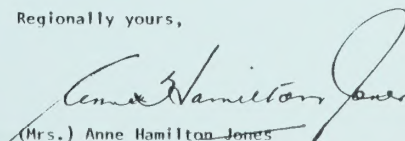 Regionally yours,
Anne Hamilton Jones
(Mrs.) Anne Hamilton Jones